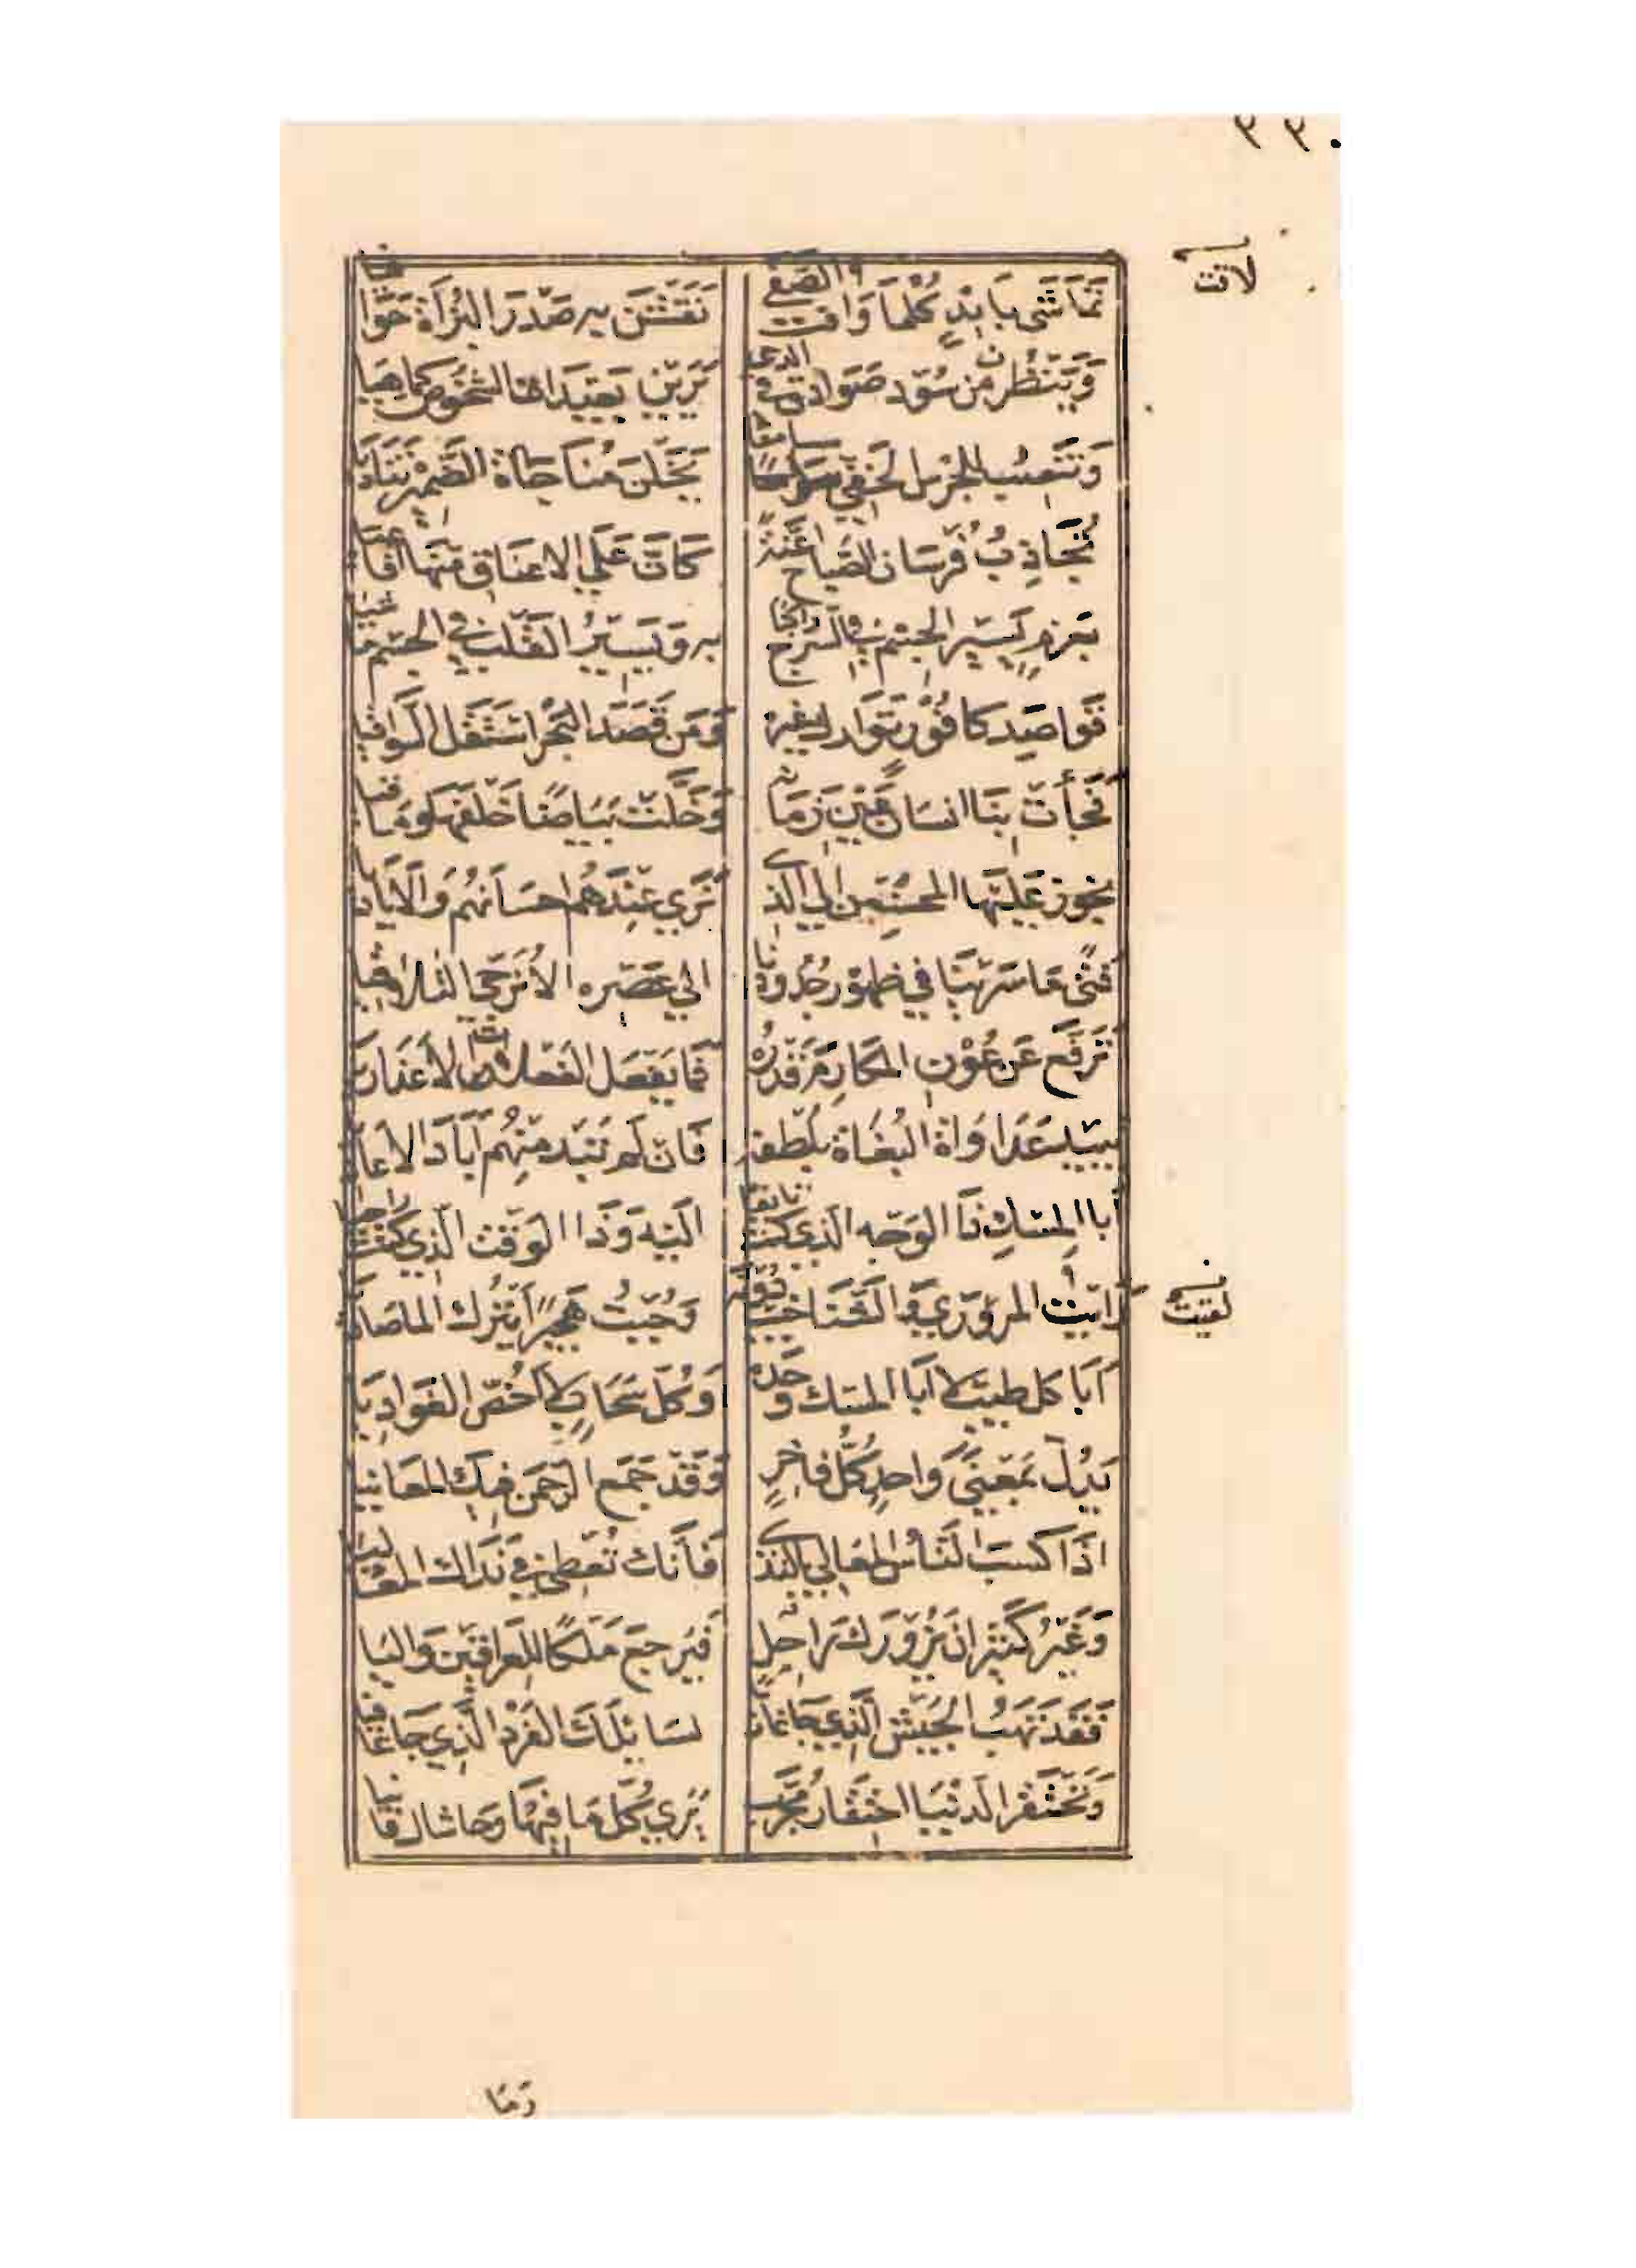 ٣٣٠
لاقت
تَمَاشَى بِأَيْدٍ كُلَّمَا وَافَتِ الصَّفَى نَقَشْنَ بِهِ صَدْرَ البُزَاةِ حَوَافِيَا
وَيَنْظُرْنَ مِنْ سُوْدٍ صَوَادِقَ فِي الدجى يَرَيْنَ بَعِيْدَاتِ الشُّخُوصِ كَمَا هِيَا
وَتَنْصِبُ لِلْجَرْسِ الخَفِيِّ سَوَامِعًا يَخَلْنَ مُنَاجَاةَ الضَّمِيْرِ تَنَادِيَا
تُجَاذِبُ فُرْسَانَ الصَّبَاحِ أَعِنَّةً كَانَّ عَلَي الاعنَاقِ مِنْهَا أَفَاعِيَا
بِعَزْمٍ يَسِيْرُ الجِسْمُ فِي السَّرْجِ رَاكِبًا بِهِ وَيَسِيْرُ القَلْبُ فِي الجِسْمِ مَاشِيَا
قَوَاصِدَ كَافُوْرٍ تَوَارِكَ غَيْرِهِ وَمَنْ قَصَدَ البَحْرَ اسْتَقَلَّ السَّوَاقِيَا
فَجَأَتْ بِنَا انسَانَ عَيْنِ زَمَانِهِ وَخَلَّتْ بَيَاضًا خَلْفَهَا وَمَاقِيَا
نجوز عَلَيْهَا المحْسِنِيْنَ إِلَي الَّذِي نَرَي عِنْدَهُمْ احسَانَهُمْ وَالأَيَادِيَا
فَتًى مَا سَرَيْنَا فِي ظُهُوْرِ جُدُوْدِنَا الي عَصْرِهِ الاَّ نُرَجِّي التَّلَاقِيَا
تَرَفَّعَ عَنْ عُوْنِ المَكَارِمِ قَدْرُهُ فَمَا يَفْعَلُ الفَعْلَاتِ الاَّ عَذَارِيَا
يُبِيْدُ عَدَاوَاةَ البُغَاةِ بِلُطْفِهِ فَانْ لَمْ تَبِدْ مِنْهُمْ أَبَادَ الاعَادِيَا
أَبَا المِسْكِ ذَا الوَجْهُ الَّذِي كُنْتُ تَايِقًا الَيْهِ وَذَا الوَقْتُ الَّذِي كُنْتُ رَاجِيَا
لقيت
رَايْتُ المَرَوْرَي وَالشَّنَاخِيْبَ دُوْنَهُ وَجُبْتُ هَجِيْرًا يَتْرُكُ المَاصَادِيَا
أَبَا كل طيبٍ لا أَبَا المِسْكِ وَحْدَهُ وَكُلَّ سَحَابٍ لا أَخُصُّ الغَوَادِيَا
يَدُلُّ بِمَعْنًى وَاحِدٍ كُلُّ فَاخِرٍ وَقَدْ جَمَعَ الرَّحْمَنُ فِيْكَ المَعَانِيَا
اذَا كَسَبَ النَّاسُ المَعَالِي بِالنَّدَى فَأَنَّكَ تُعْطِي فِي نَدَاكَ المَعَالِيَا
وَغَيْرُ كَثِيْرٍ ان يَزُوْرَكَ رَاجِلٌ فَيَرْجِعَ مَلْكًا لِلْعِرَاقَيْنِ وَالِيَا
فَقَدْ تَهَبُ الجَيْشَ الَّذِي جَا غَازِيًا لسَايِلِكَ الفَرْدِ الَّذِي جَا عَافِيَا
وَتَحْتَقِرُ الدُّنْيَا احْتِقَارَ مُجَرِّبٍ يَرَي كُلَّ مَا فِيْهَا وَحَاشَاكَ فَانِيَا
وَمَا